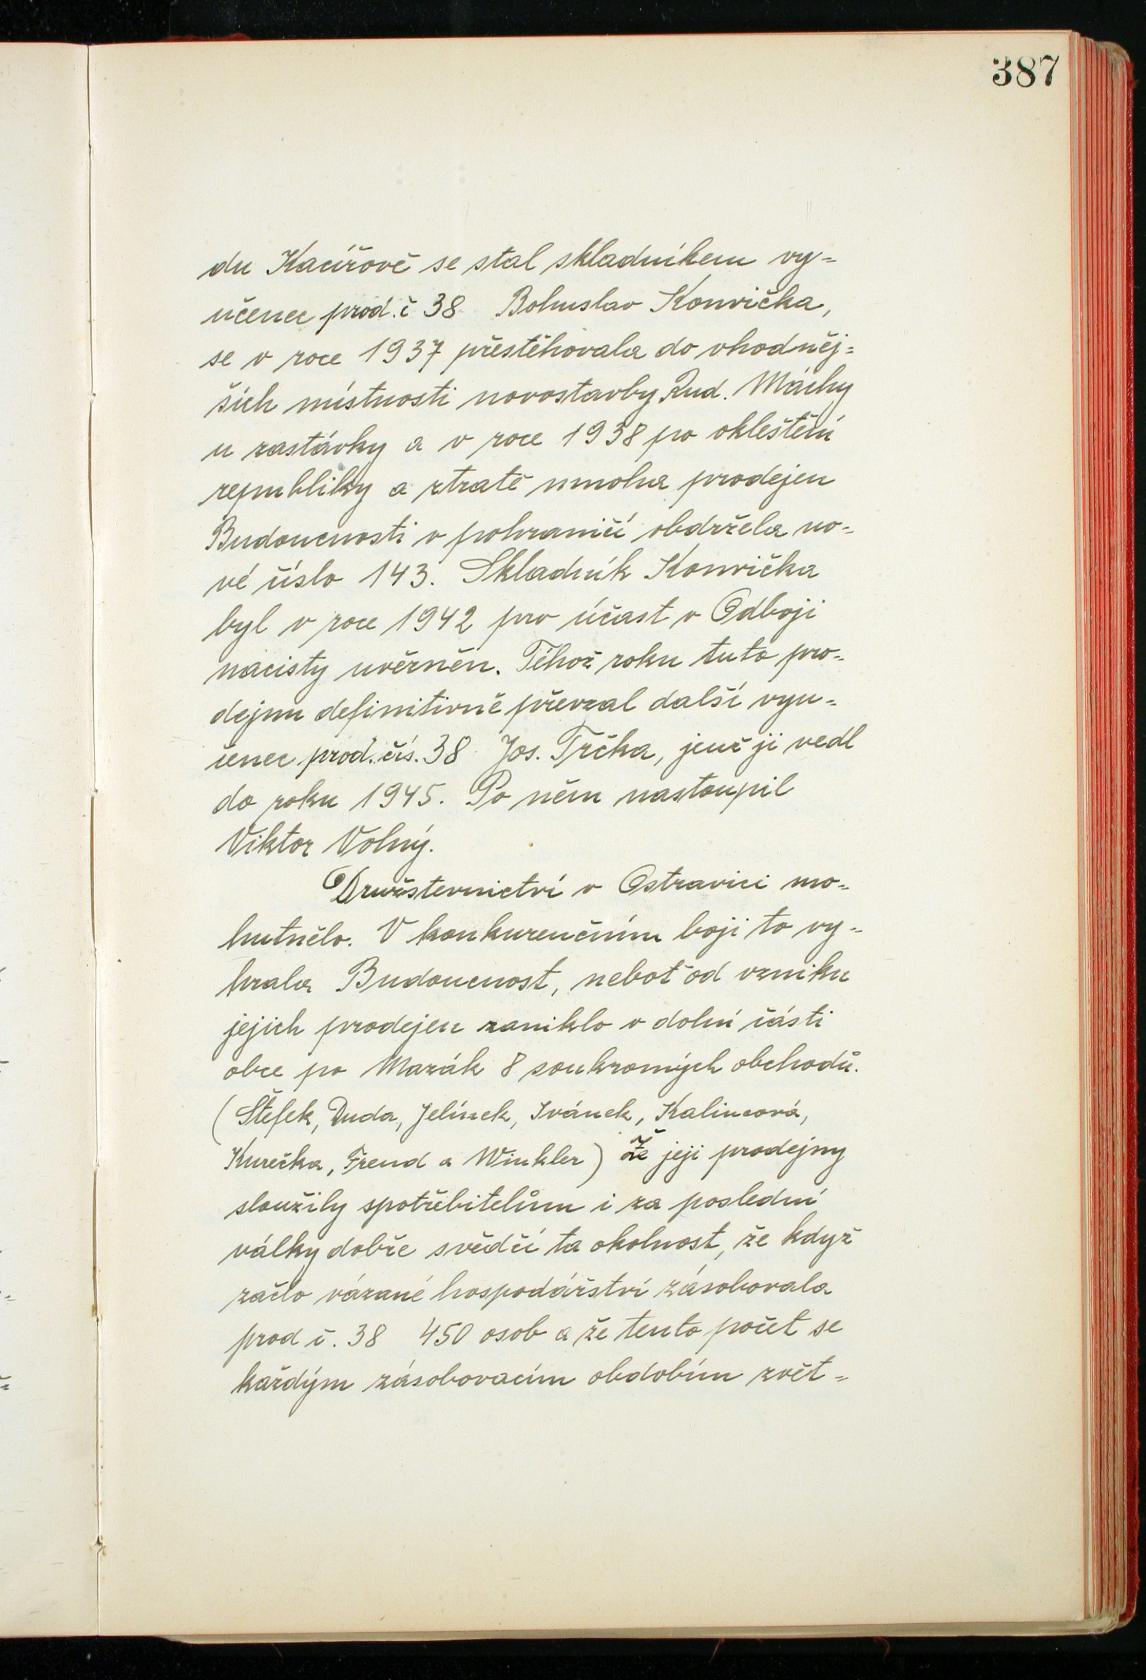 387
du Kacířově se stal skladníkem vy=
učenec prod. č 38 Bohuslav Konvička,
se v roce 1937 přestěhovala do vhodněj=
ších místností novostavby Rud. Máchy
u zastávky a v roce 1938 po okleštění
republiky a ztratě mnoha prodejen
Budoucnosti v pohraničí obdržela no=
vé číslo 143. Skladník Konvička
byl v roce 1942 pro účast v Odboji
nacisty uvězněn. Téhož roku tuto pro=
dejnu definitivně převzal další vyu=
čenec prod. čís. 38 Jos. Trčka, jenž ji vedl
do roku 1945. Po něm nastoupil
Viktor Volný.
Družstevnictví v Ostravici mo=
hutnělo. V konkurenčním boji to vy=
hrála Budoucnost, neboť od vzniku
jejich prodejen zaniklo v dolní části
obce po Mazák 8 soukromých obchodů.
(Štefek, Duda, Jelínek, Ivánek, Kalincová,
Kurečka, Frend a Winkler) Že její prodejny
sloužily spotřebitelům i za poslední
války dobře svědčí ta okolnost, že když
začlo vázané hospodářství zásobovala
prod č. 38 450 osob a že tento počet se
každým zásobovacím obdobím zvět=